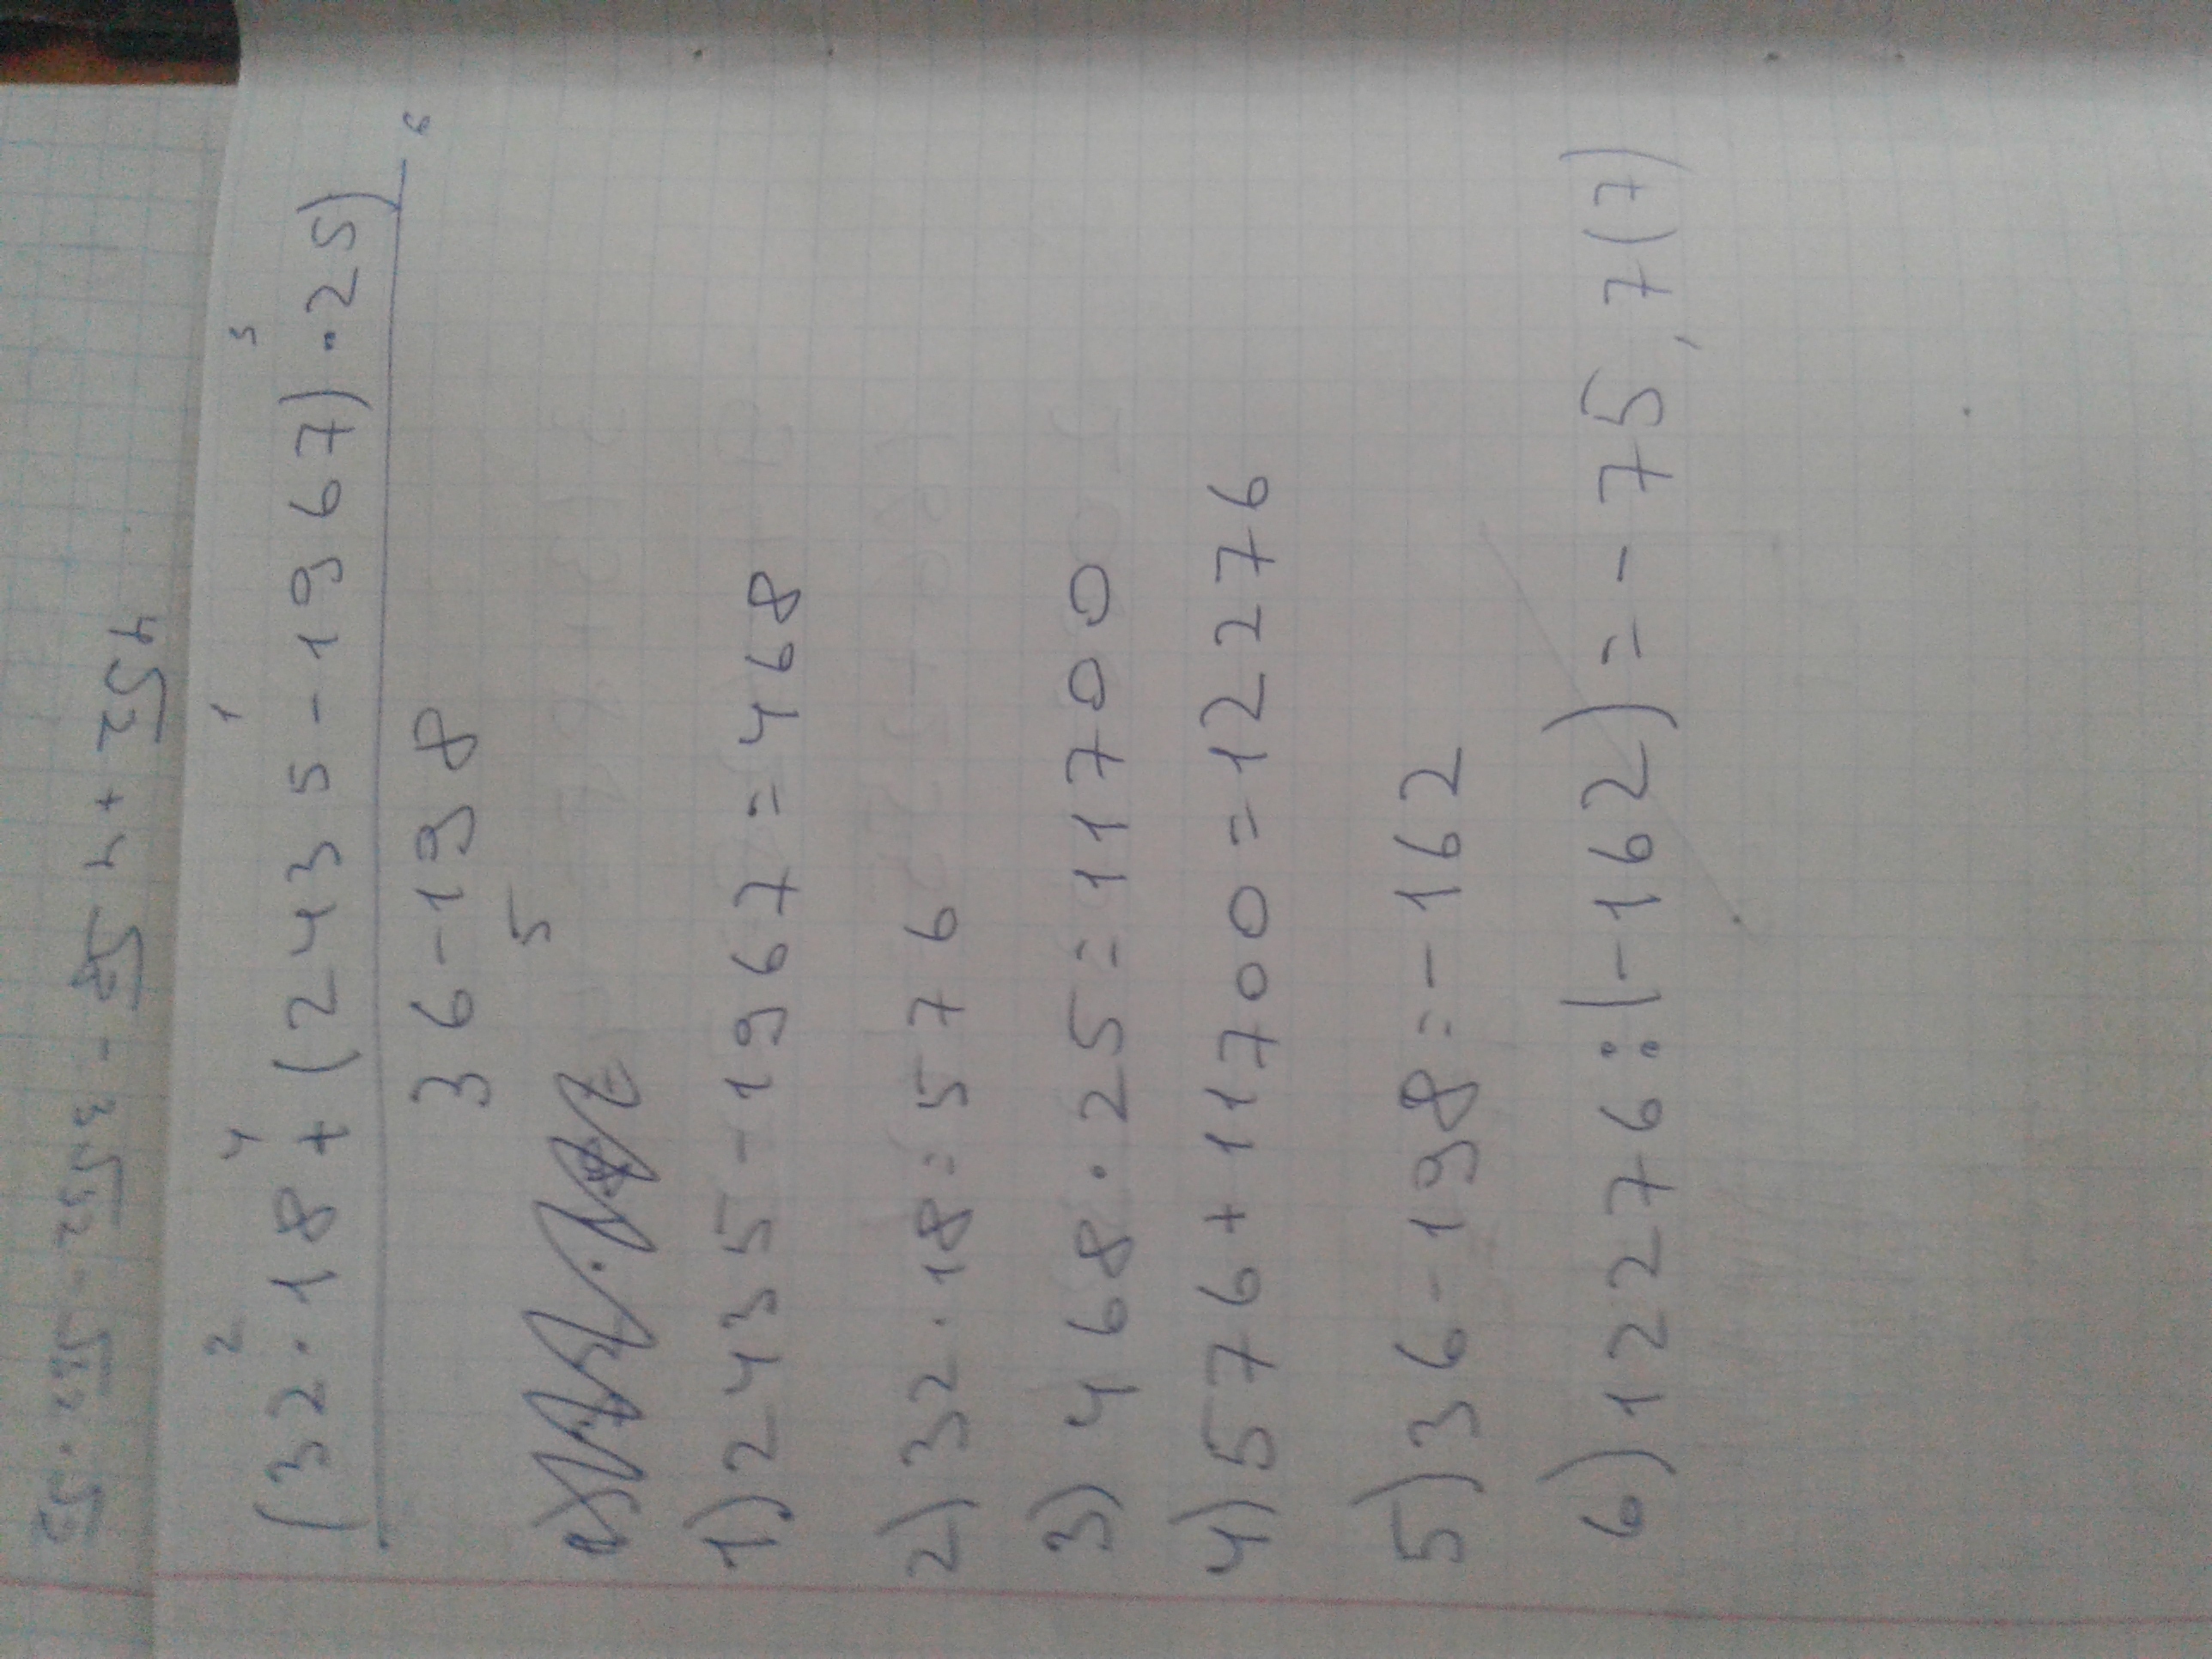 2 4 1 3
(32·18+(2435-1967)·25)
6
36-198
5
1)2435-1967=468
2)32·18=576
3)468·25=11700
4)576+11700=12276
5)36-198=-162
6)12276:(-162)=-75,7(7)